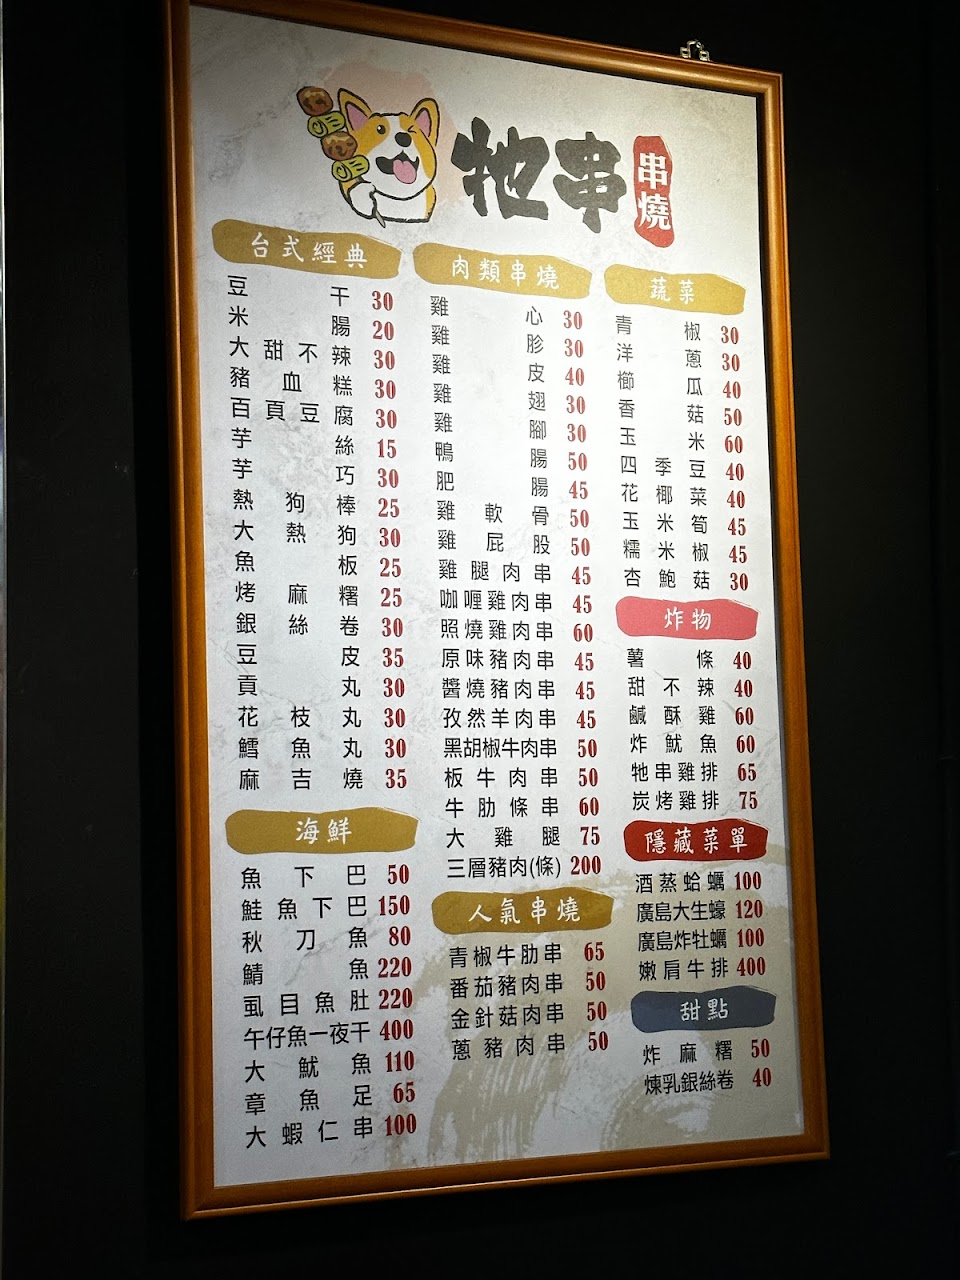 牠串
串燒
台式經典
豆干 30
米腸 20
大甜不辣 30
豬血糕 30
百頁豆腐 30
芋絲 15
芋巧 30
熱狗棒 25
大熱狗 30
魚板 25
烤麻糬 25
銀絲卷 30
豆皮 35
貢丸 30
花枝丸 30
鱈魚丸 30
麻吉燒 35
海鮮
魚下巴 50
鮭魚下巴 150
秋刀魚 80
鯖魚 220
虱目魚肚 220
午仔魚一夜干 400
大魷魚 110
章魚足 65
大蝦仁串 100
肉類串燒
雞心 30
雞胗 30
雞皮 40
雞翅 30
雞腳 30
鴨腸 50
肥腸 45
雞軟骨 50
雞屁股 50
雞腿肉串 45
咖哩雞肉串 45
照燒雞肉串 60
原味豬肉串 45
醬燒豬肉串 45
孜然羊肉串 45
黑胡椒牛肉串 50
板牛肉串 50
牛肋條串 60
大雞腿 75
三層豬肉(條) 200
人氣串燒
青椒牛肋串 65
番茄豬肉串 50
金針菇肉串 50
蔥豬肉串 50
蔬菜
青椒 30
洋蔥 30
櫛瓜 40
香菇 50
玉米 60
四季豆 40
花椰菜 40
玉米筍 45
糯米椒 45
杏鮑菇 30
炸物
薯條 40
甜不辣 40
鹹酥雞 60
炸魷魚 60
牠串雞排 65
炭烤雞排 75
隱藏菜單
酒蒸蛤蠣 100
廣島大生蠔 120
廣島炸牡蠣 100
嫩肩牛排 400
甜點
炸麻糬 50
煉乳銀絲卷 40